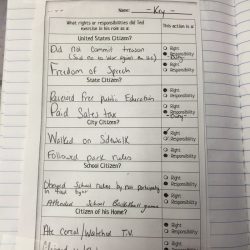 Name: - Key -
What rights or responsibilities did Ted
exercise in his role as a:
This action is a:
United States Citizen?
Did not commit treason
Right
Responsibility
Freedom of Speech
Right
Responsibility
State Citizen?
Received Free Public Education
Right
Responsibility
Paid Sales tax
Right
Responsibility
City Citizen?
Walked on Sidewalk
Right
Responsibility
Followed park rules
Right
Responsibility
School Citizen?
Obeyed School rules by non participating
in food
Right
Responsibility
Attended School Basketball game
Right
Responsibility
Citizen of his Home?
Ate cereal/Watched T.V.
Right
Responsibility
Right